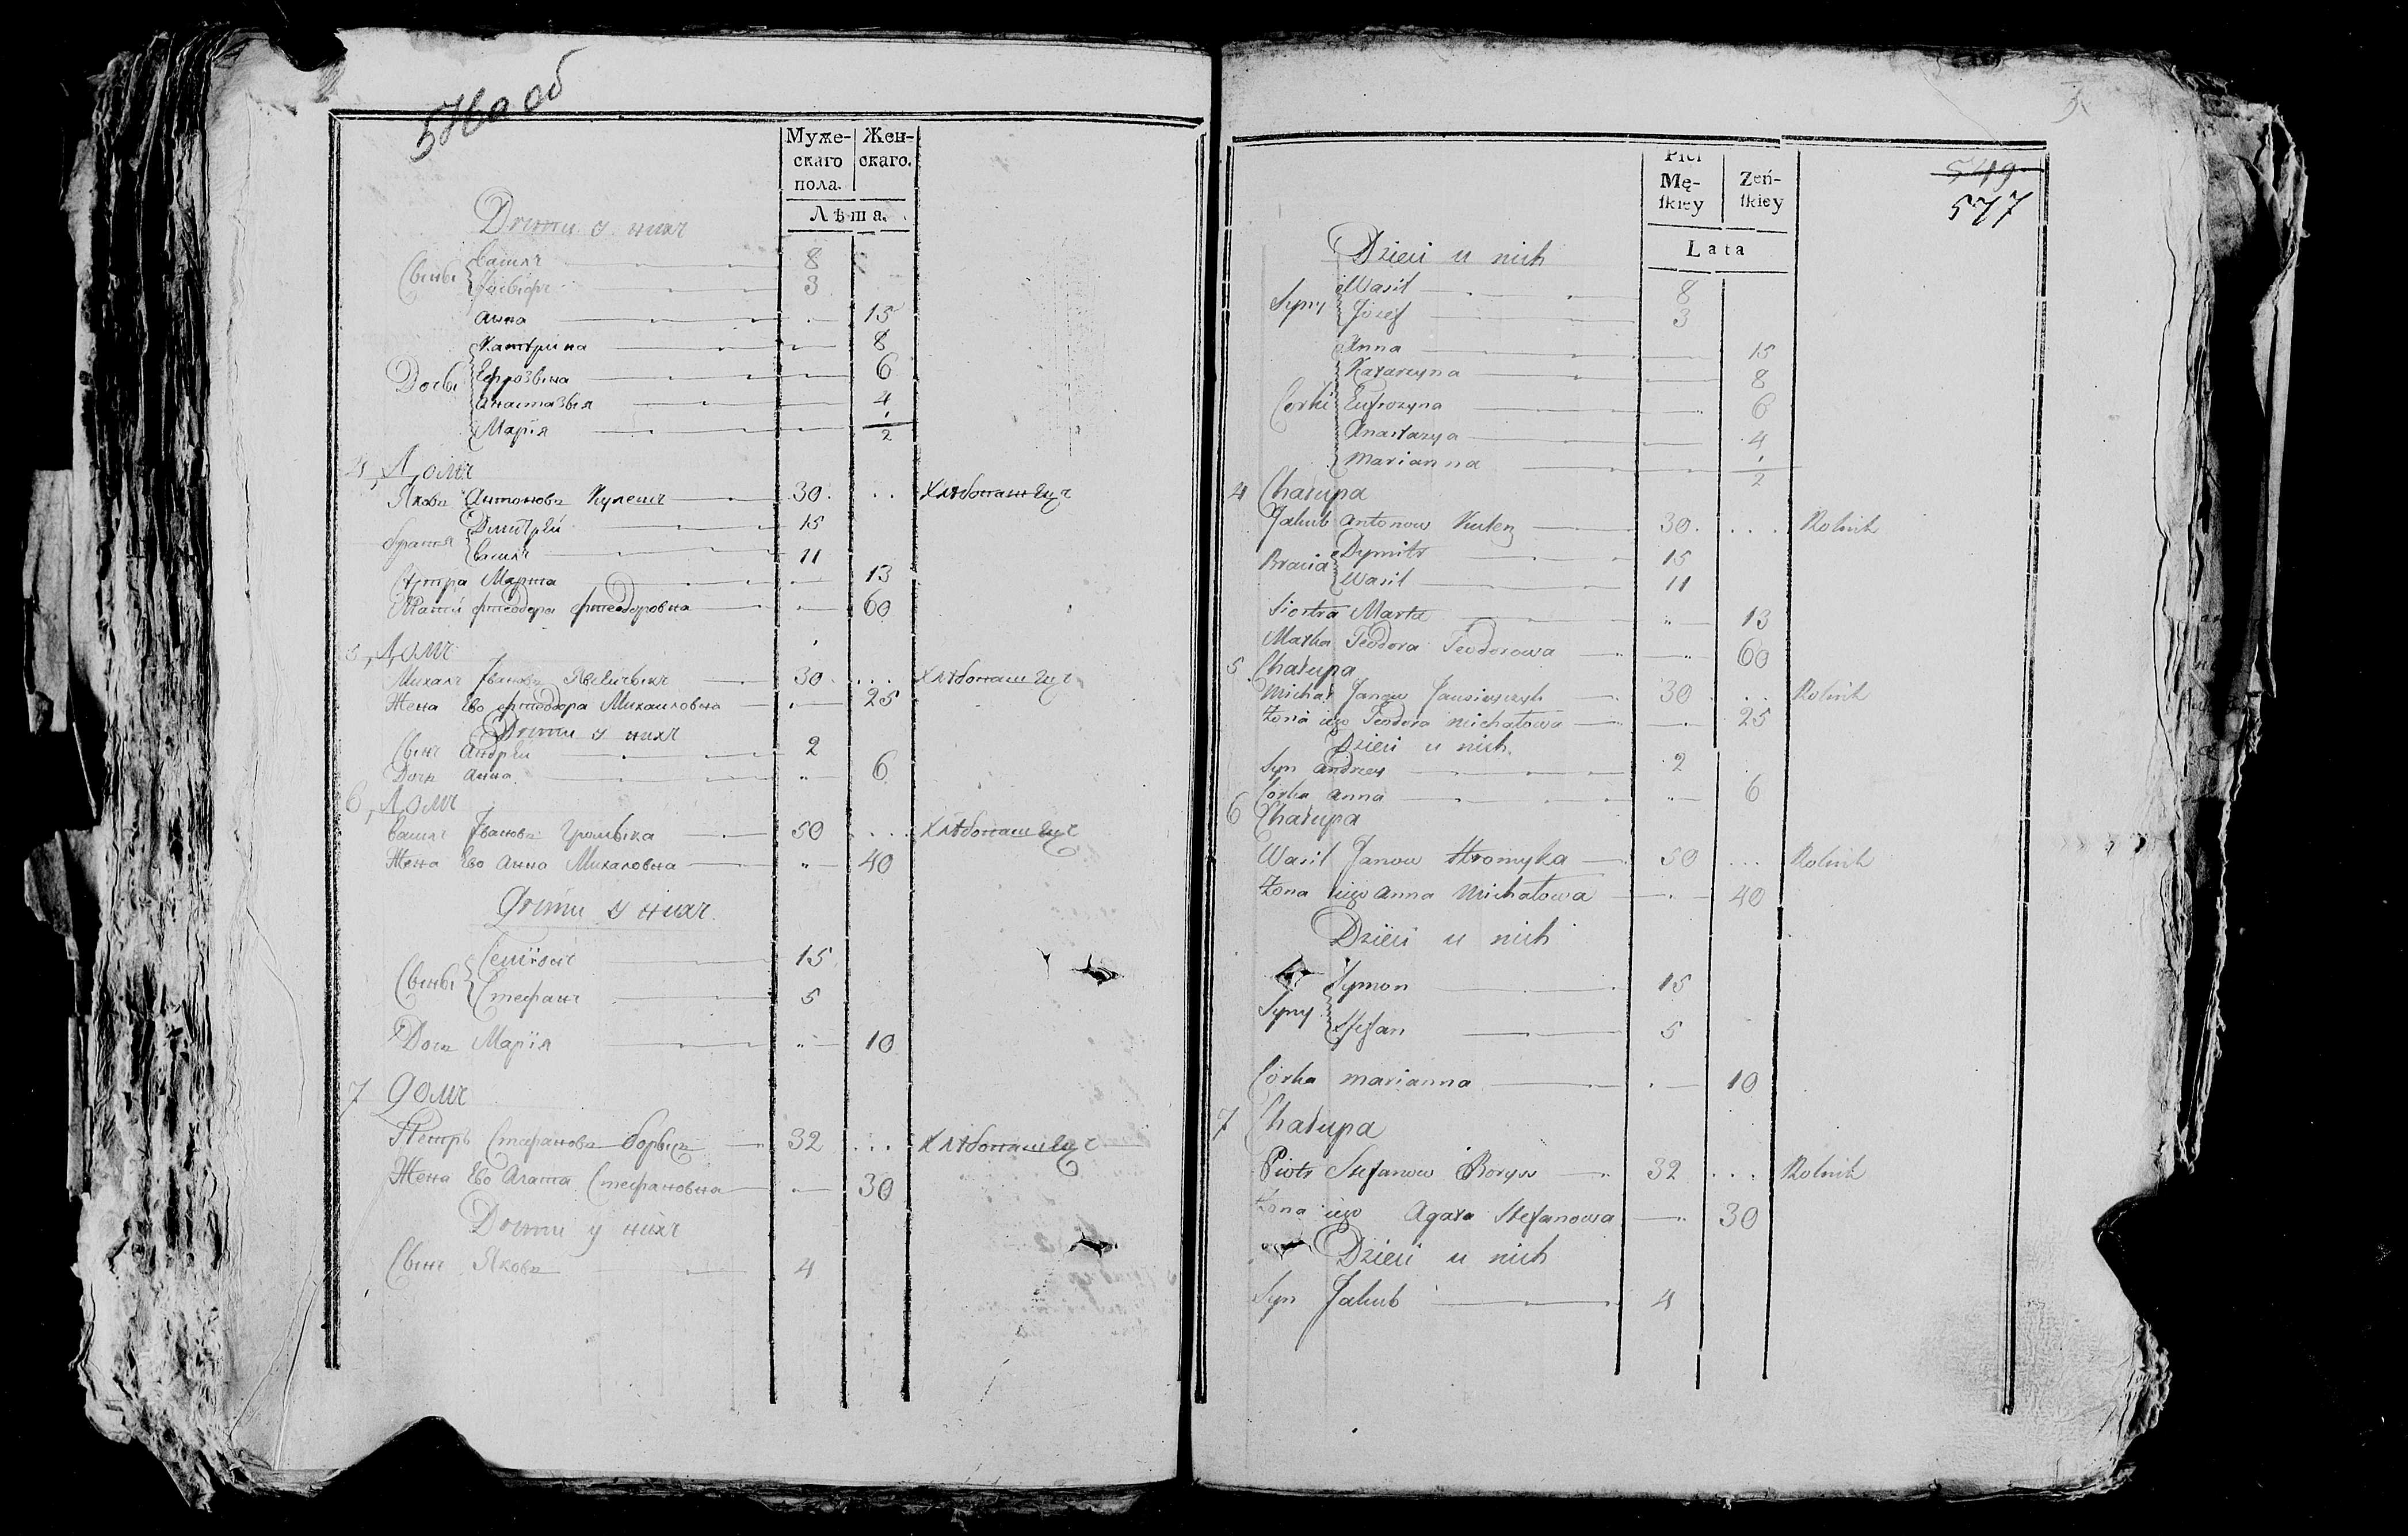 576 об
Муже- Жен-
скаго скаго.
пола.
Лѣта.
Дѣти у нихъ
Сыны Василъ 8
Іосифъ 3
Анна 15
Катгрина 8
Дочы Ефрозына 6
Анастазыя 4
Марія 1/2
4 Домъ
Яковъ Антоновъ Кулешъ 30 Хлѣбопашецъ
братя Дмитрей 15
Василъ 11
Сестра Марта 13
Мати Фтеодора Фтеодоровна 60
5 Домъ
Михалъ Ивановъ 30 Хлѣбопашецъ
Жена Ево Фтеодора Михаиловна 25
Дѣти у нихъ
Сынъ Андрей 2
Дочъ Анна 6
6 Домъ
Василъ Ивановъ Громыка 50 Хлѣбопашецъ
Жена Ево Анна Михаловна 40
Дѣти у нихъ
Сыны Семіонъ 15
Стефанъ 5
Дочъ Марія 10
7 Домъ
Петръ Стефановъ Борысъ 32 Хлѣбопашецъ
Жена Ево Агата Стефановна 30
Дѣти у нихъ
Сынъ Яковъ 4
Płci
Mę- Żeń-
ſkiey ſkiey
Lata
549
577
Dzieci u nich
Syny Wasil 8
Józef 3
Anna 15
Katarzyna 8
Corki Eufrozyna 6
Anastazya 4
Marianna 1/2
4 Chałupa
Jakub Antonow Kulesz 30 Rolnik
Bracia Dymitr 15
Wasil 11
Siostra Marta 13
Matka Teodora Teodorowa 60
5 Chałupa
Michał Janow 30 Rolnik
Żona iego Teodora Michałowa 25
Dzieci u nich
Syn Andrzey 2
Corka Anna 6
6 Chałupa
Wasil Janow Hromyka 50 Rolnik
Żona iego Anna Michałowa 40
Dzieci u nich
Symon 15
Syny
Stefan 5
Córka Marianna 10
7 Chałupa
Piotr Stefanow Borys 32 Rolnik
Żona iego Agata Stefanowa 30
Dzieci u nich
Syn Jakub 4